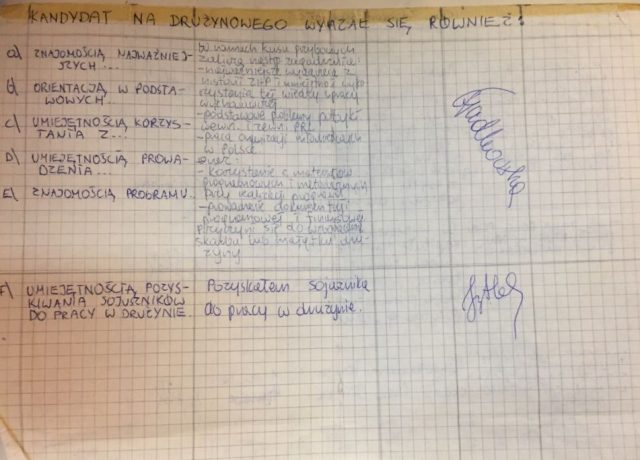 KANDYDAT NA DRUŻYNOWEGO WYKAZAŁ SIĘ RÓWNIEŻ:
a) ZNAJOMOŚCIĄ NAJWAŻNIEJ-
SZYCH...
b) ORIENTACJĄ W PODSTA-
WOWYCH...
c) UMIEJĘTNOŚCIĄ KORZYS-
TANIA Z...
D) UMIEJĘTNOŚCIĄ PROWA-
DZENIA...
E) ZNAJOMOŚCIĄ PROGRAMU...
W ramach kursu przybocznych
zaliczył
- najważniejsze wydarzenia z
historii ZHP i umiejętność wyko-
rzystania tej wiedzy w pracy
wychowawczej
- podstawowe problemy polityki
wewn. i zewn. PRL
- praca organizacji młodzieżowych
w Polsce
oraz:
- korzystanie z materiałów
programowych i metodycznych
przy realizacji programu
- prowadzenie dokumentacji
programowej i finansowej
Przyczynił się do wzbogacenia
skarbu lub majątku dru-
żyny
F) UMIEJĘTNOŚCIĄ POZYS-
KIWANIA SOJUSZNIKÓW
DO PRACY W DRUŻYNIE.
Pozyskałem sojusznika
do pracy w drużynie.